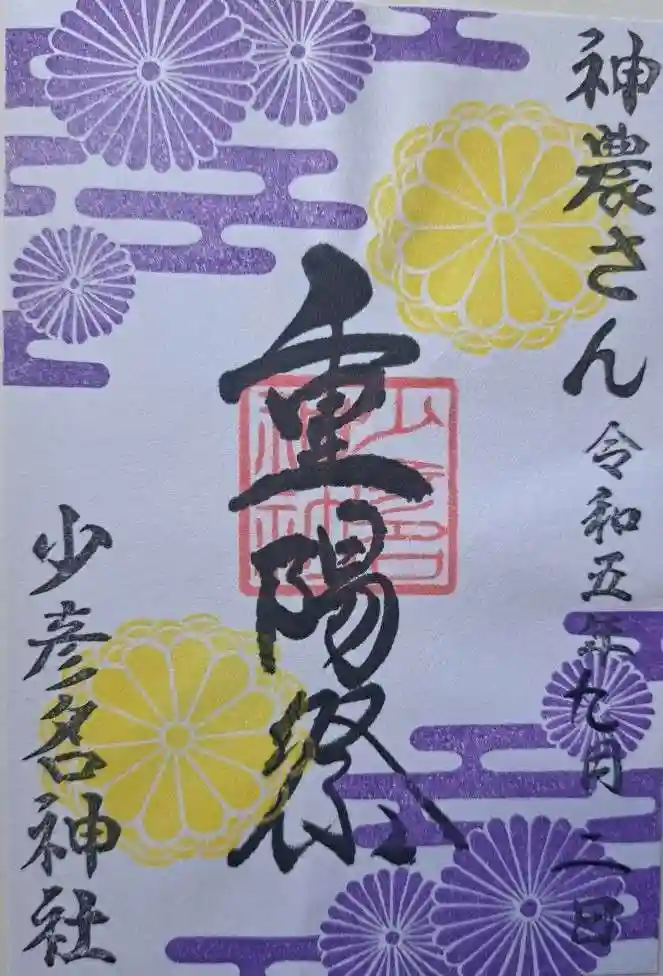 神農さん 令和五年九月二日
重陽祭
少彦名神社